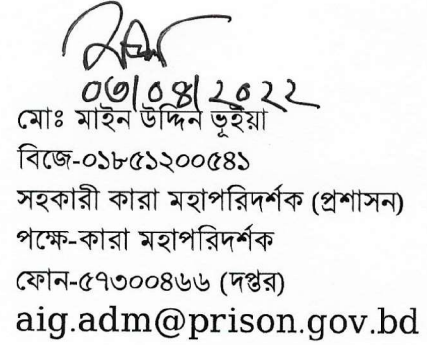 ০৩/০৪/২০২২
মোঃ মাইন উদ্দিন ভূইয়া
বিজে-০১৮৫১২০০৫৪১
সহকারী কারা মহাপরিদর্শক (প্রশাসন)
পক্ষে-কারা মহাপরিদর্শক
ফোন-৫৭৩০০৪৬৬ (দপ্তর)
aig.adm@prison.gov.bd